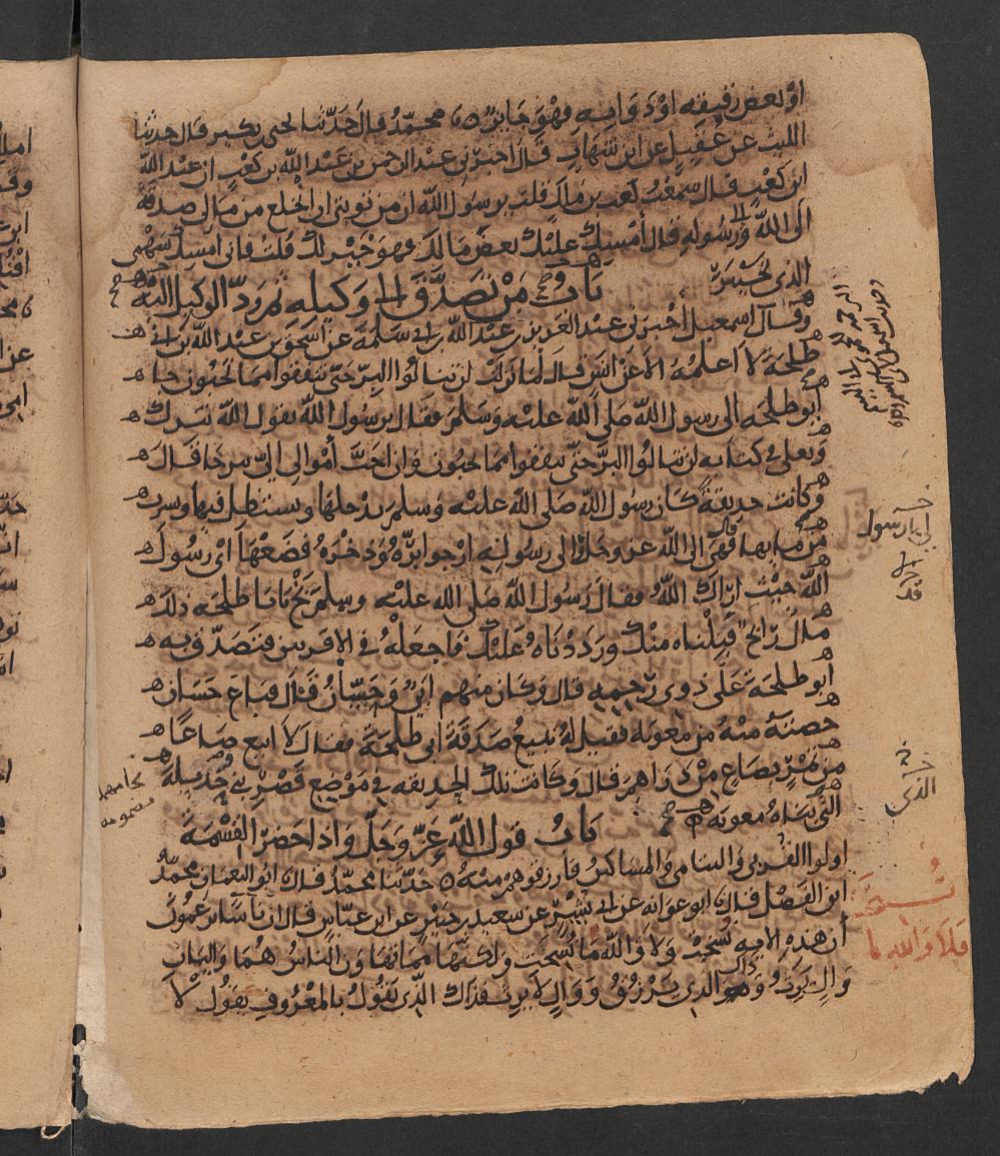 او بعض رقيقه او دوابه فهو جايز ه محمد قال حدثنا يحيى بكير قال حدثنا
الليث عن عقيل عن ابن شهاب قال اخبرني عبد الرحمن بن عبد الله بن كعب ان عبد الله
ابن كعب قال سمعت كعب بن مالك قلت يرسول الله ان من توبتي ان انخلع من مالي صدقة
الى الله والى رسوله قال أمسك عليك بعض مالك فهو خير لك قلت فاني امسك سهمي
الذي بخيبر
باب من تصدق الى وكيله ثم رد الوكيل اليه
وقال اسمعيل أخبرني عبد العزيز بن عبد الله بن ابي سلمة عن اسحق بن عبد الله بن ابي
طلحة لا اعلمه الا عن انس قال لما نزلت لن تنالوا البر حتى تنفقوا مما تحبون جا
أبو طلحه الى رسول الله صلى الله عليه وسلم فقال يرسول الله يقول الله تبرك
وتعلى في كتابه لن تنالوا البر حتى تنفقوا مما تحبون وان احب أموالي الي بيرحا قال
وكانت حديقة كان رسول الله صلى الله عليه وسلم يدخلها ويستظل فيها ويشرب
من مايها قال فهي الى الله عز وجل والى رسوله ارجو بره وذخره فضعها اى رسول
الله حيث اراك الله فقال رسول الله صلى الله عليه وسلم بخ يابا طلحه ذلك
مال رابح قبلناه منك ورددناه عليك فاجعله في الاقربين فتصدق به
أبو طلحة على ذوي رحمه قال وكان منهم ابي وحسان قال فباع حسان
حصته منه من معوية فقيل له تبيع صدقة ابي طلحة فقال الا ابيع صاعا
من تمر بصاع من دراهم قال وكانت تلك الحديقه في موضع قصر بني جديلة
الذي بناه معويه
باب قول الله عز وجل واذا حضر القسمة
اولوا القربى واليتامى والمساكين فارزقوهم منه ه حدثنا محمد قال ابو النعمان محمد
ابن الفضل قال ابو عوانه عن ابي بشر عن سعيد بن جبير عن ابن عباس قال ان ناسا يزعمون
أن هذه الايه نسخت ولا والله ما نسخت ولكنها مما تهاون الناس هما واليان
وال يرث وذاك الذي يرزق ووال لا يرث فذاك الذي يقول بالمعروف يقول لا
ابي يا رسول
الذي
نسخة
فلا والله ما